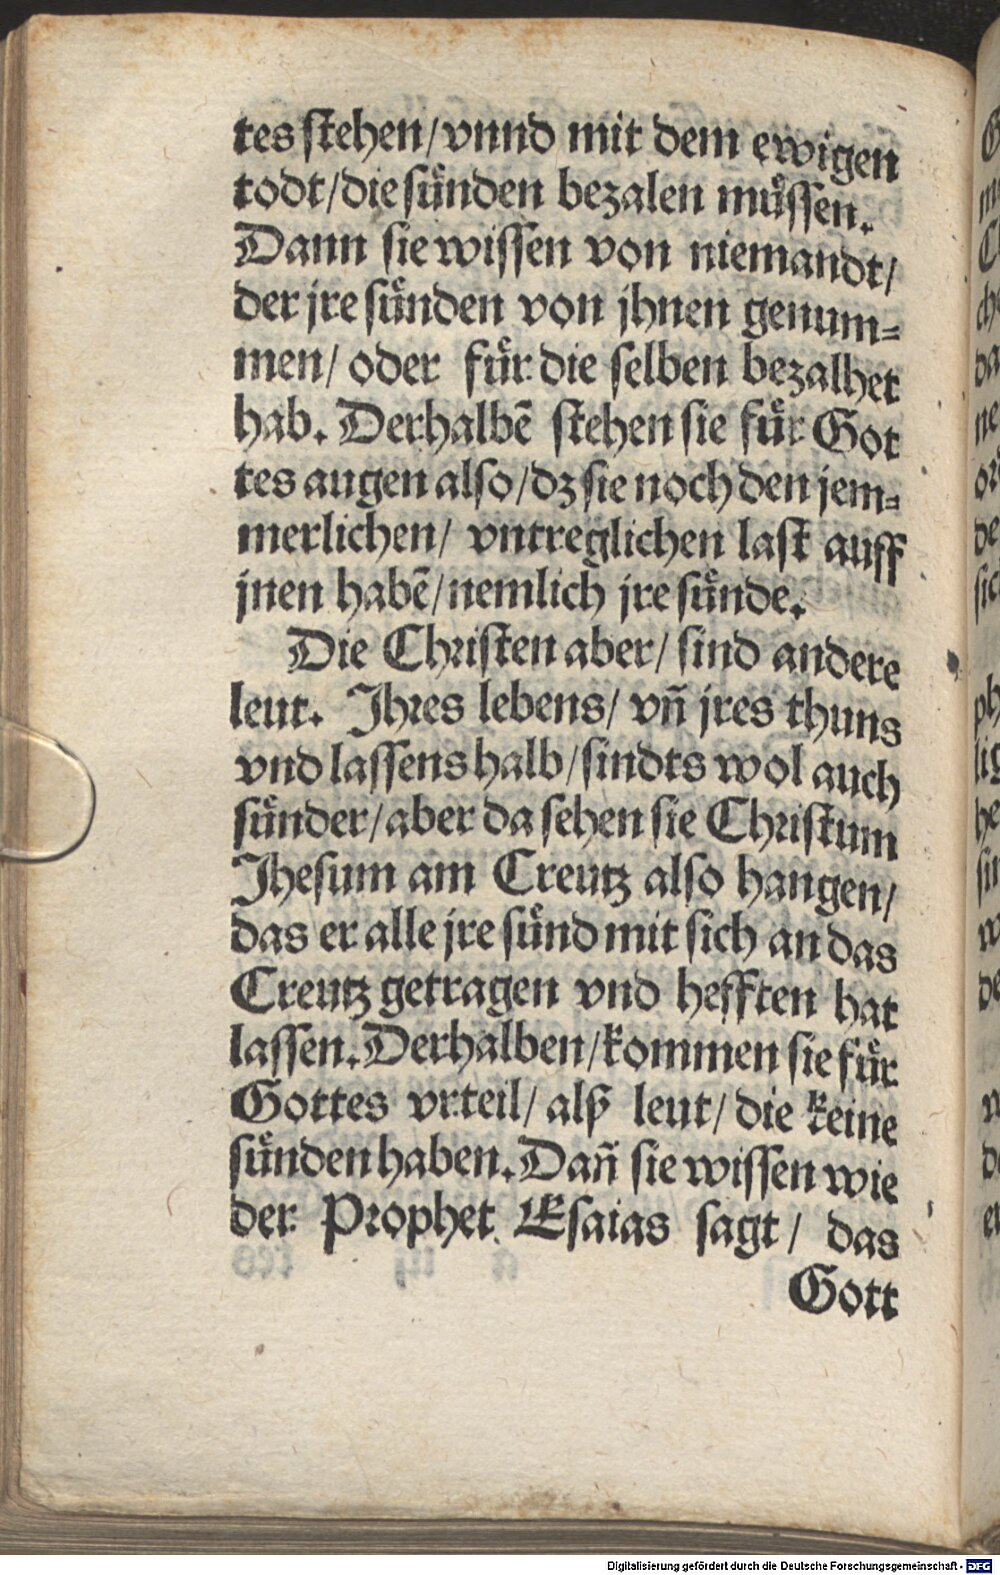 tes stehen/vnnd mit dem ewigen
todt/die sünden bezalen müssen.
Dann sie wissen von niemandt/
der jre sünden von jhnen genum-
men/ oder für die selben bezalhet
hab. Derhalbẽ stehen sie für Got
tes augen also/dz sie noch den jem-
merlichen/ vntreglichen last auff
jnen habẽ/nemlich jre sünde.
Die Christen aber/ sind andere
leut. Jhres lebens/ vñ jres thuns
vnd lassens halb/sindts wol auch
sünder/aber da sehen sie Christum
Jhesum am Creutz also hangen/
das er alle jre sünd mit sich an das
Creutz getragen vnd hefften hat
lassen. Derhalben/kommen sie für
Gottes vrteil/ alß leut/ die keine
sünden haben. Dañ sie wissen wie
der Prophet Esaias sagt/ das
Gott
Digitalisierung gefördert durch die Deutsche Forschungsgemeinschaft - DFG